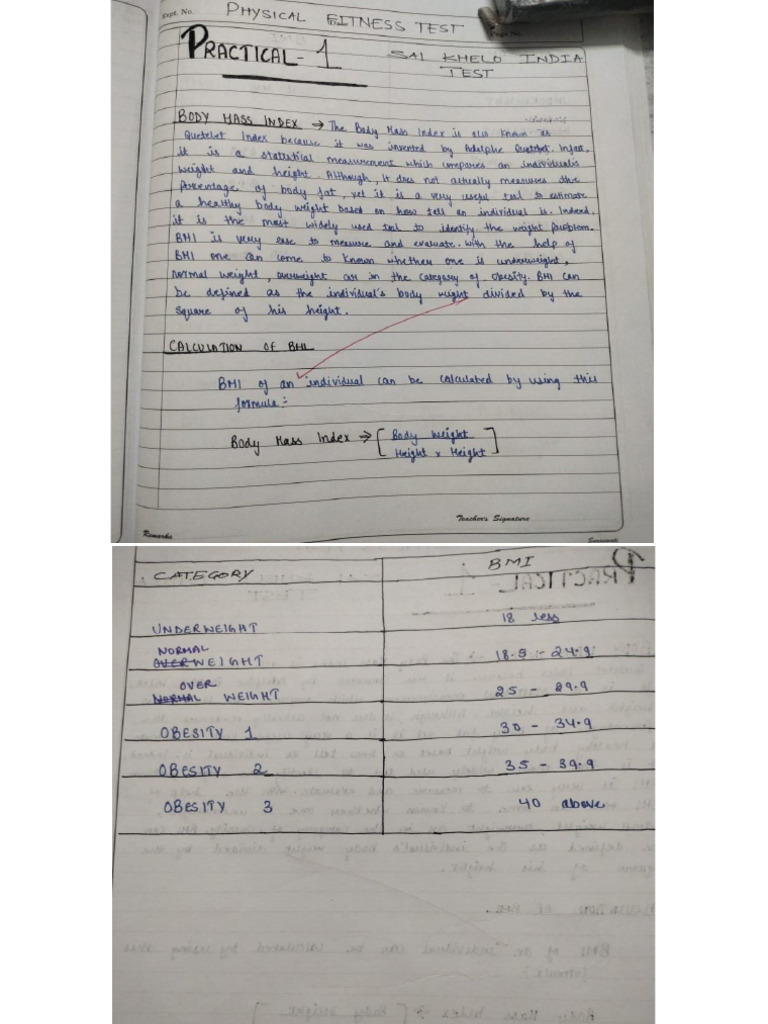 Expt. No.
PHYSICAL FITNESS TEST
Page No.
PRACTICAL - 1
SAI KHELO INDIA
TEST
BODY MASS INDEX → The Body Mass Index is also known as
Quetelet Index because it was invented by Adolphe Quetelet. Infact,
it is a statistial measurement which compares an individuals
weight and height. Although, it does not actually measures the
percentage of body fat, yet it is a very useful tool to estimate
a healthy body weight based on how tall an individual is. Indeed,
it is the most widely used tool to identify the weight problem.
BMI is very ease to measure and evaluate. With the help of
BMI one can come to known whether one is underweight,
normal weight, overweight or in the category of obesity. BMI can
be defined as the individual's body weight divided by the
square of his height.
CALCULATION OF BMI
BMI of an individual can be calculated by using this
formula :-
Body Mass Index → [ Body Weight
Height x Height ]
Teacher's Signature
Remarks
CATEGORY BMI
UNDERWEIGHT 18 less
NORMAL
OVER WEIGHT 18.5 - 24.9
OVER
NORMAL WEIGHT 25 - 29.9
OBESITY 1 30 - 34.9
OBESITY 2 35 - 39.9
OBESITY 3 40 above